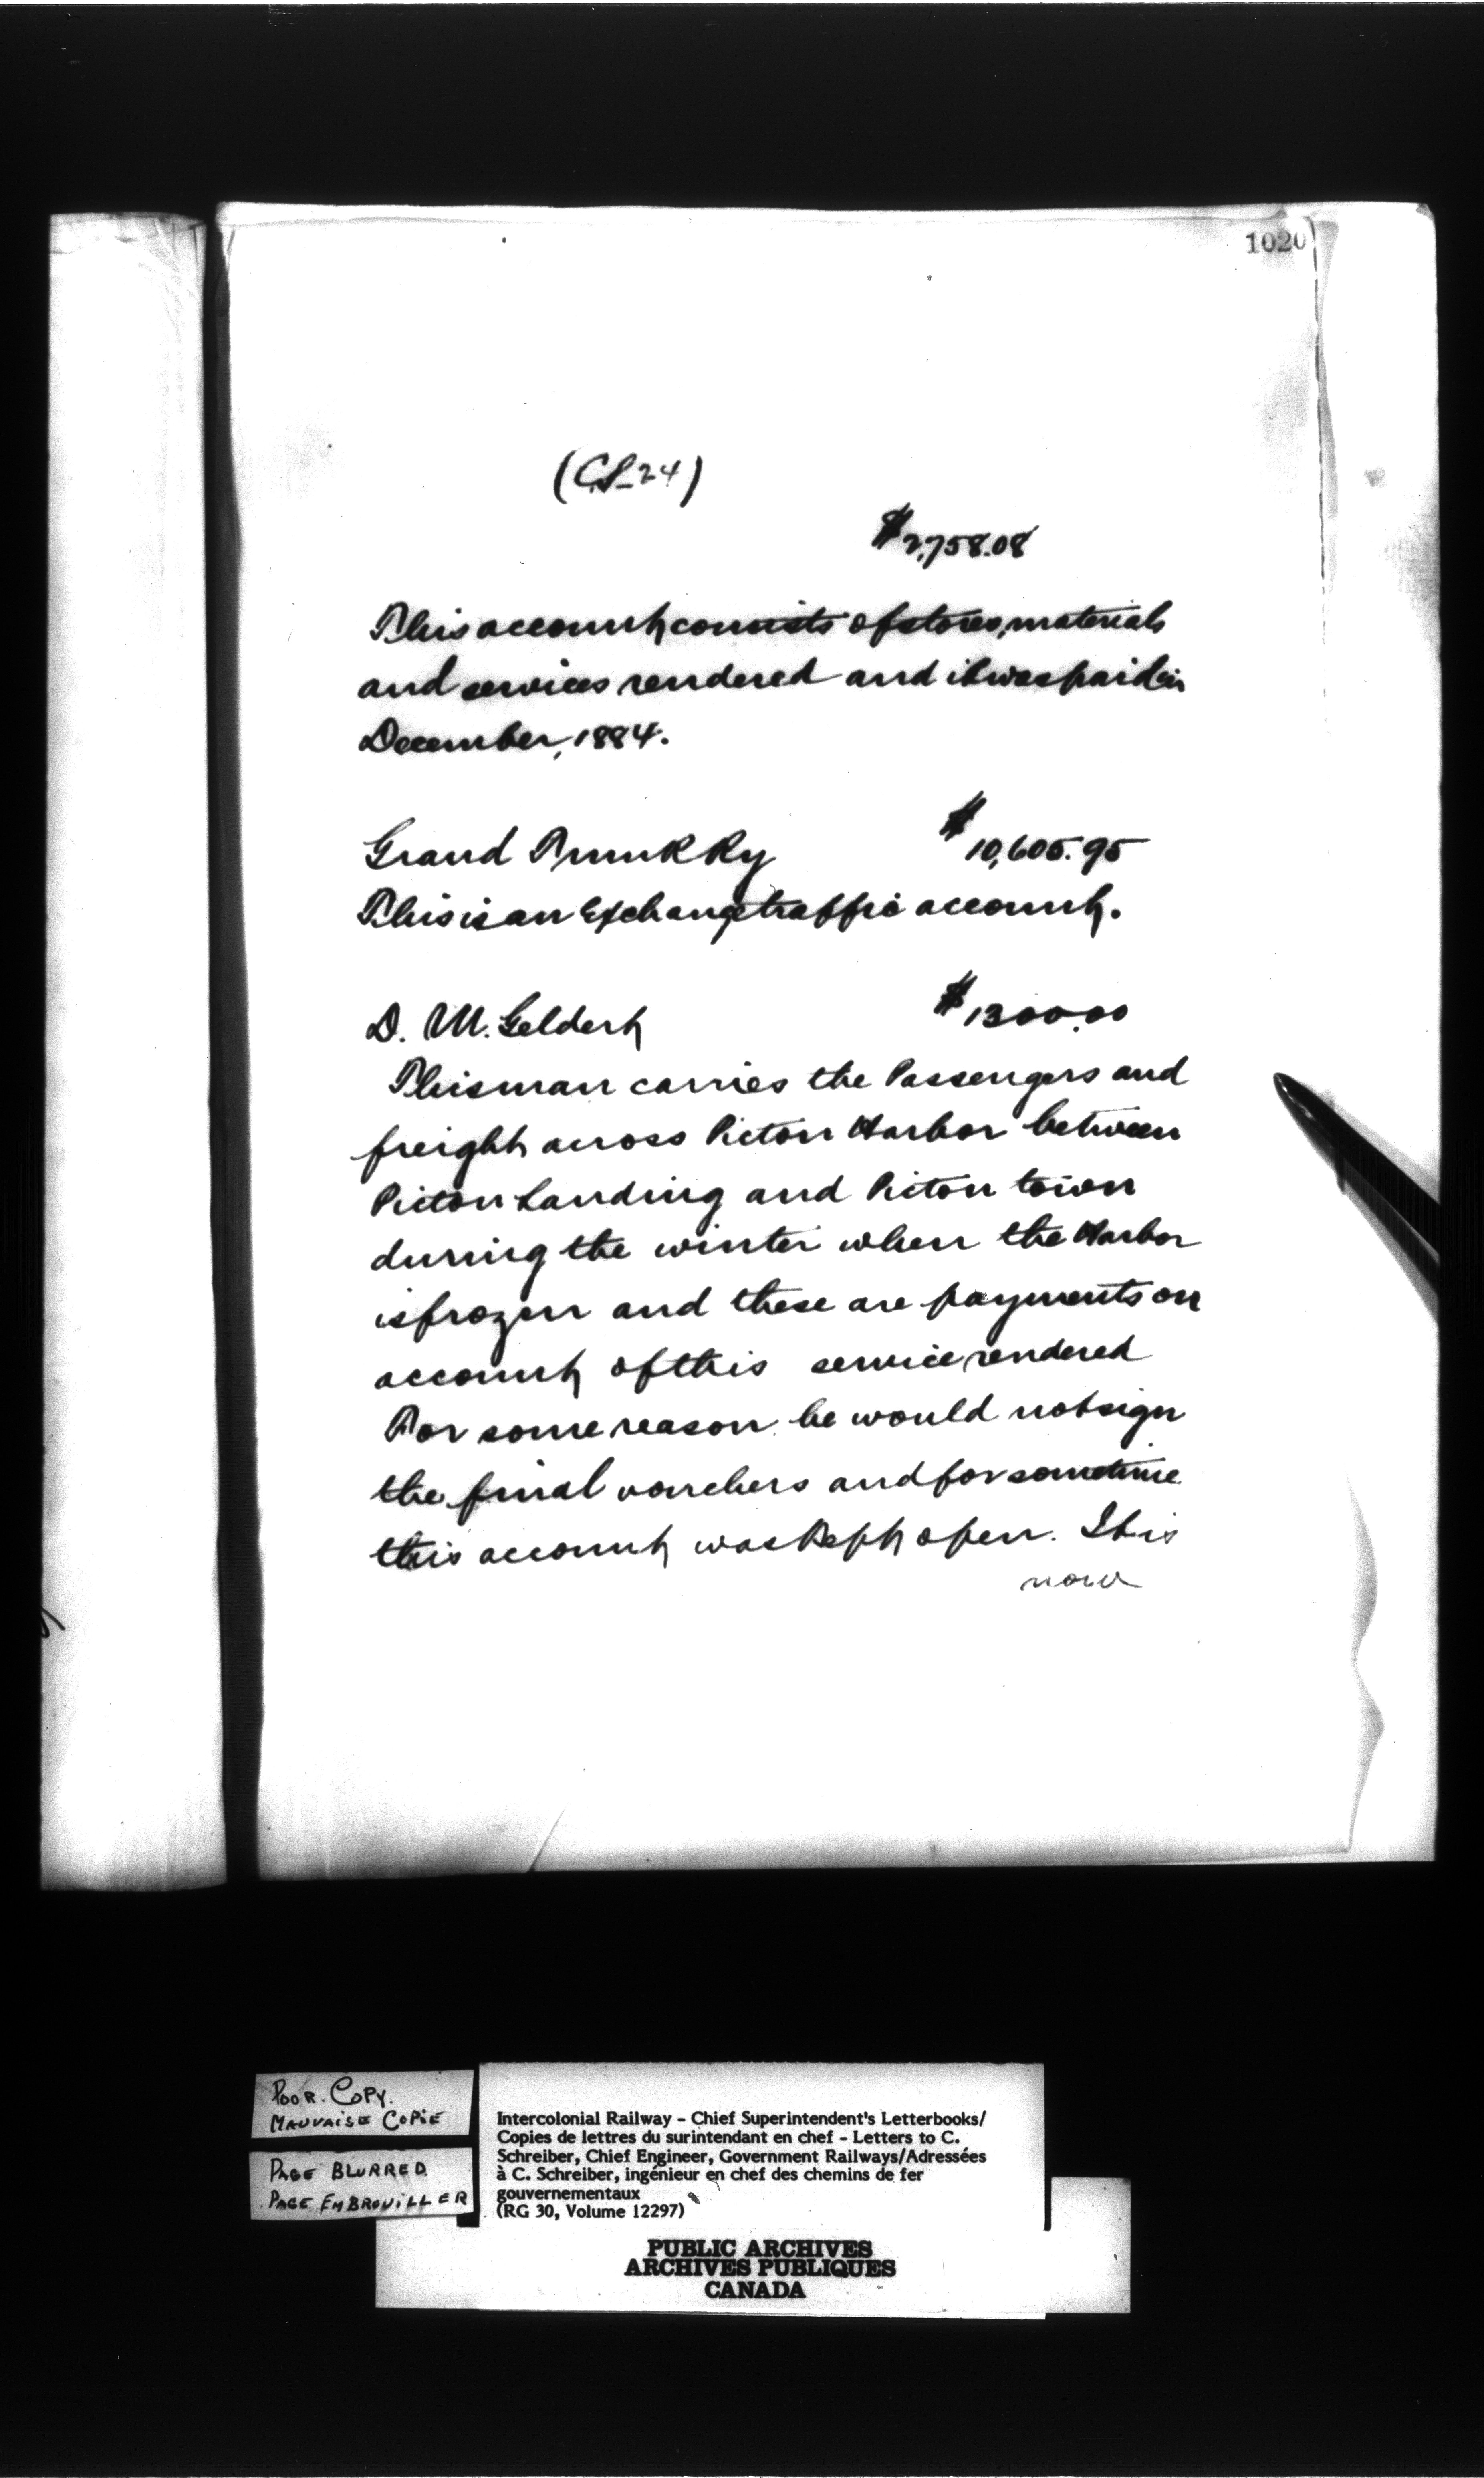 1020
(C.S-24)
$2,758.08
This account consists of stores, materials
and services rendered and it was paid in
December, 1884.
Grand Trunk Ry
$10,605.95
This is an Exchange traffic account.
D. M. Geldert
$1300.00
This man carries the Passengers and
freight across Picton Harbor between
Picton Landing and Picton town
during the winter when the Harbor
is frozen and these are payments on
account of this service rendered
For some reason he would not sign
the final vouchers and for sometime
this account was kept open. It is
now
POOR. COPY.
MAUVAISE COPIE
PAGE BLURRED
PAGE EMBROUILLER
Intercolonial Railway - Chief Superintendent's Letterbooks/
Copies de lettres du surintendant en chef - Letters to C.
Schreiber, Chief Engineer, Government Railways/Adressées
à C. Schreiber, ingénieur en chef des chemins de fer
gouvernementaux
(RG 30, Volume 12297)
PUBLIC ARCHIVES
ARCHIVES PUBLIQUES
CANADA